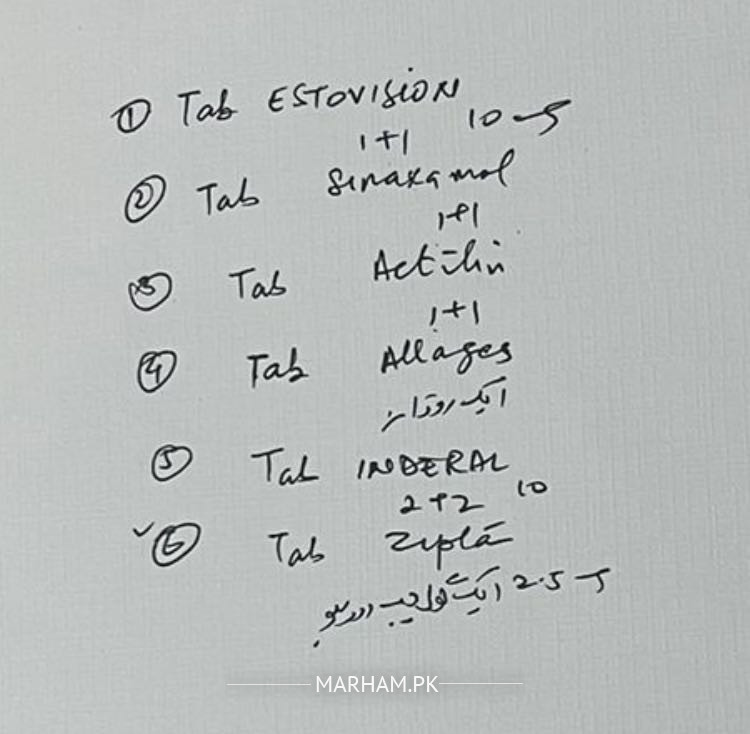 ① Tab ESTOVISION 10
1+1
② Tab Sinaxamol
1+1
③ Tab Actilin
1+1
④ Tab Allages
ایک روزانہ
⑤ Tab INDERAL
2+2 10
⑥ Tab Zipla
2.5 ایک گولی جب درد ہو
MARHAM.PK